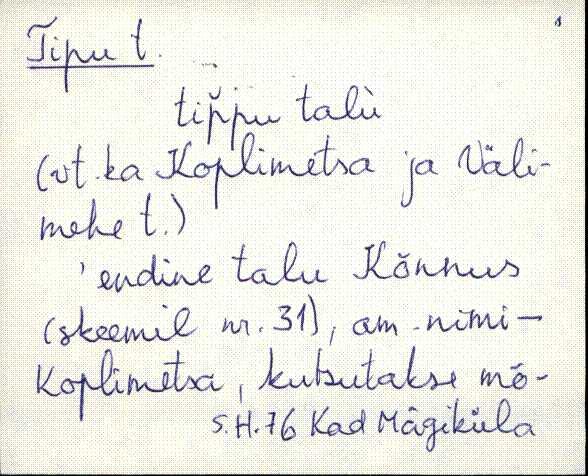 Tipu t.
tip̆pu talù
(vt. ka Koplimetsa ja Väli-
mehe t.)
'endine talu Kõnnus
(skeemil nr. 31), am. nimi –
Koplimetsa, kutsutakse mõ-
S.H.76 Kad Mägiküla